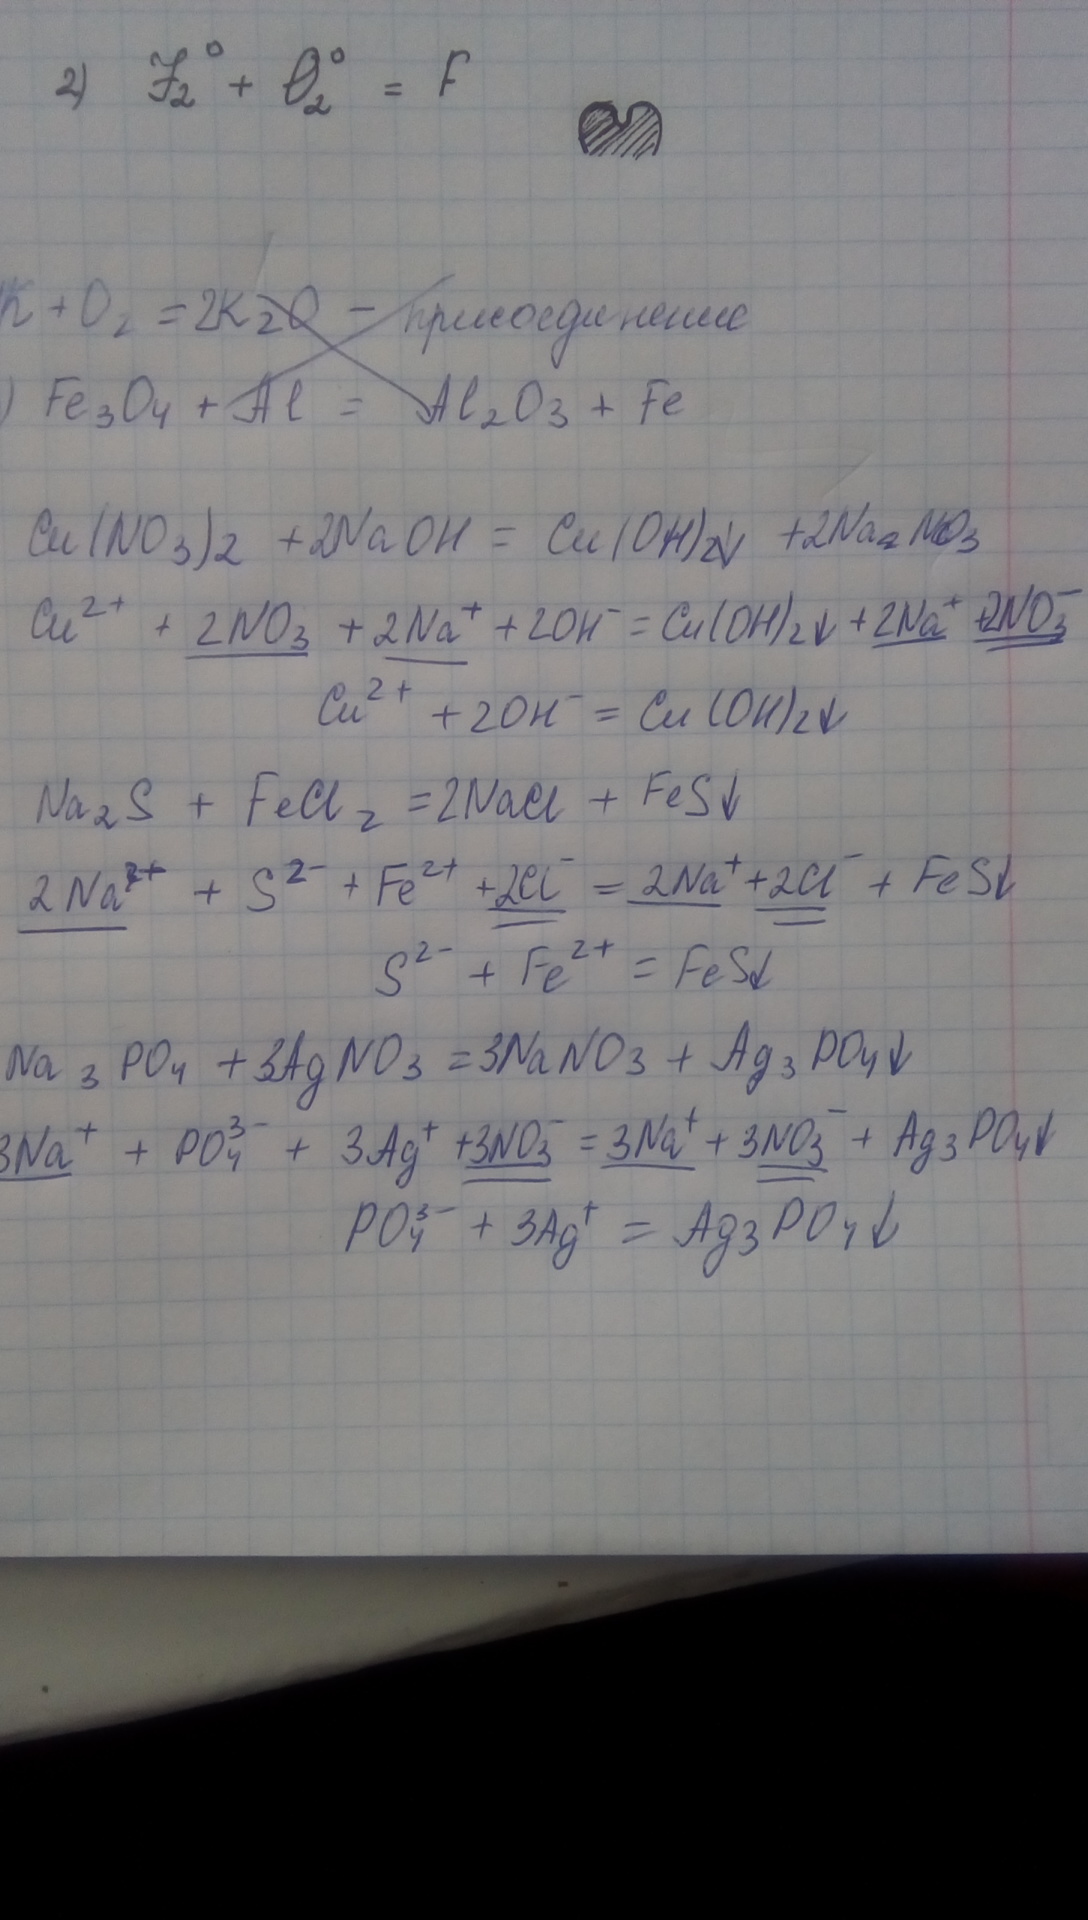 2) F₂⁰ + O₂⁰ = F
K + O₂ = 2K₂O - присоединение
) Fe₃O₄ + Al = Al₂O₃ + Fe
Cu(NO₃)₂ + 2NaOH = Cu(OH)₂↓ + 2NaNO₃
Cu²⁺ + 2NO₃ + 2Na⁺ + 2OH⁻ = Cu(OH)₂↓ + 2Na⁺ + 2NO₃⁻
Cu²⁺ + 2OH⁻ = Cu(OH)₂↓
Na₂S + FeCl₂ = 2NaCl + FeS↓
2Na⁺ + S²⁻ + Fe²⁺ + 2Cl⁻ = 2Na⁺ + 2Cl⁻ + FeS↓
S²⁻ + Fe²⁺ = FeS↓
Na₃PO₄ + 3AgNO₃ = 3NaNO₃ + Ag₃PO₄↓
3Na⁺ + PO₄³⁻ + 3Ag⁺ + 3NO₃⁻ = 3Na⁺ + 3NO₃⁻ + Ag₃PO₄↓
PO₄³⁻ + 3Ag⁺ = Ag₃PO₄↓